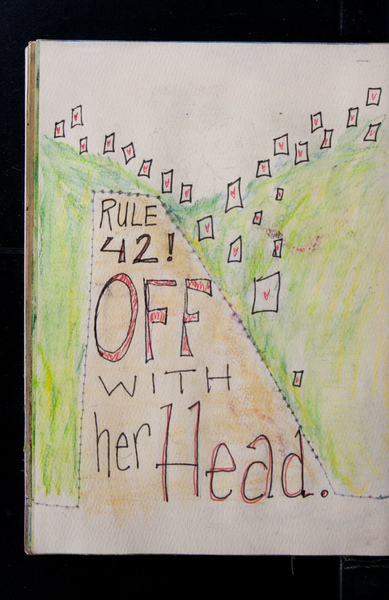 RULE
42!
OFF
WITH
her Head.